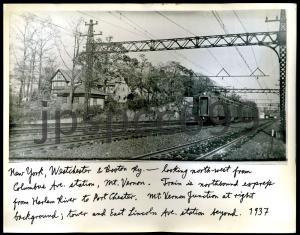 New York, Westchester & Boston Ry. — looking northwest from
Columbus Ave. station, Mt. Vernon. Train is northbound express
from Harlem River to Port Chester. Mt Vernon Junction at right
background; tower and East Lincoln Ave. station beyond. 1937